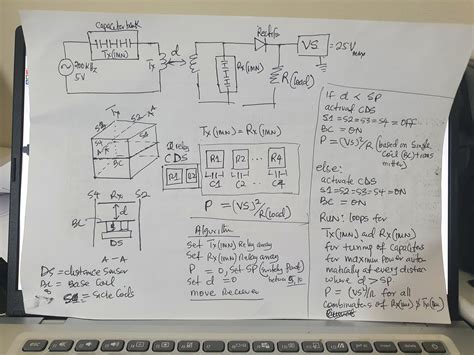 Capacitor bank
Tx(IMN)
200KHz
5V
Tx
d
Rx(IMN)
Rectifier
R(load)
VS
= 25V max
Tx
A
A
S3
S2
BC
relay
CDS
R1 R2
Tx(IMN) = Rx(IMN)
R1 R2 ... R4
C1 C2 ... C4
P = (VS)²/R(load)
S4 Rx S2
BC
d
DS
A - A
DS = distance Sensor
BC = Base Coil
Algorithm
Set Tx(IMN) Relay array
Set Rx(IMN) Relay array
P = 0, Set SP (switching point)
Set d = 0
move Receiver
if d < SP
activate CDS
S1 = S2 = S3 = S4 = OFF
BC = ON
P = (VS)²/R (based on Single
Coil (BC) trans
mitter)
else:
activate CDS
S1 = S2 = S3 = S4 = ON
BC = ON
RUN: loops for
Tx(IMN) ad Rx(IMN)
for tuning of Capacitors
for maximum power auto
matically at every distan
where d > SP
P = (VS)²/R for all